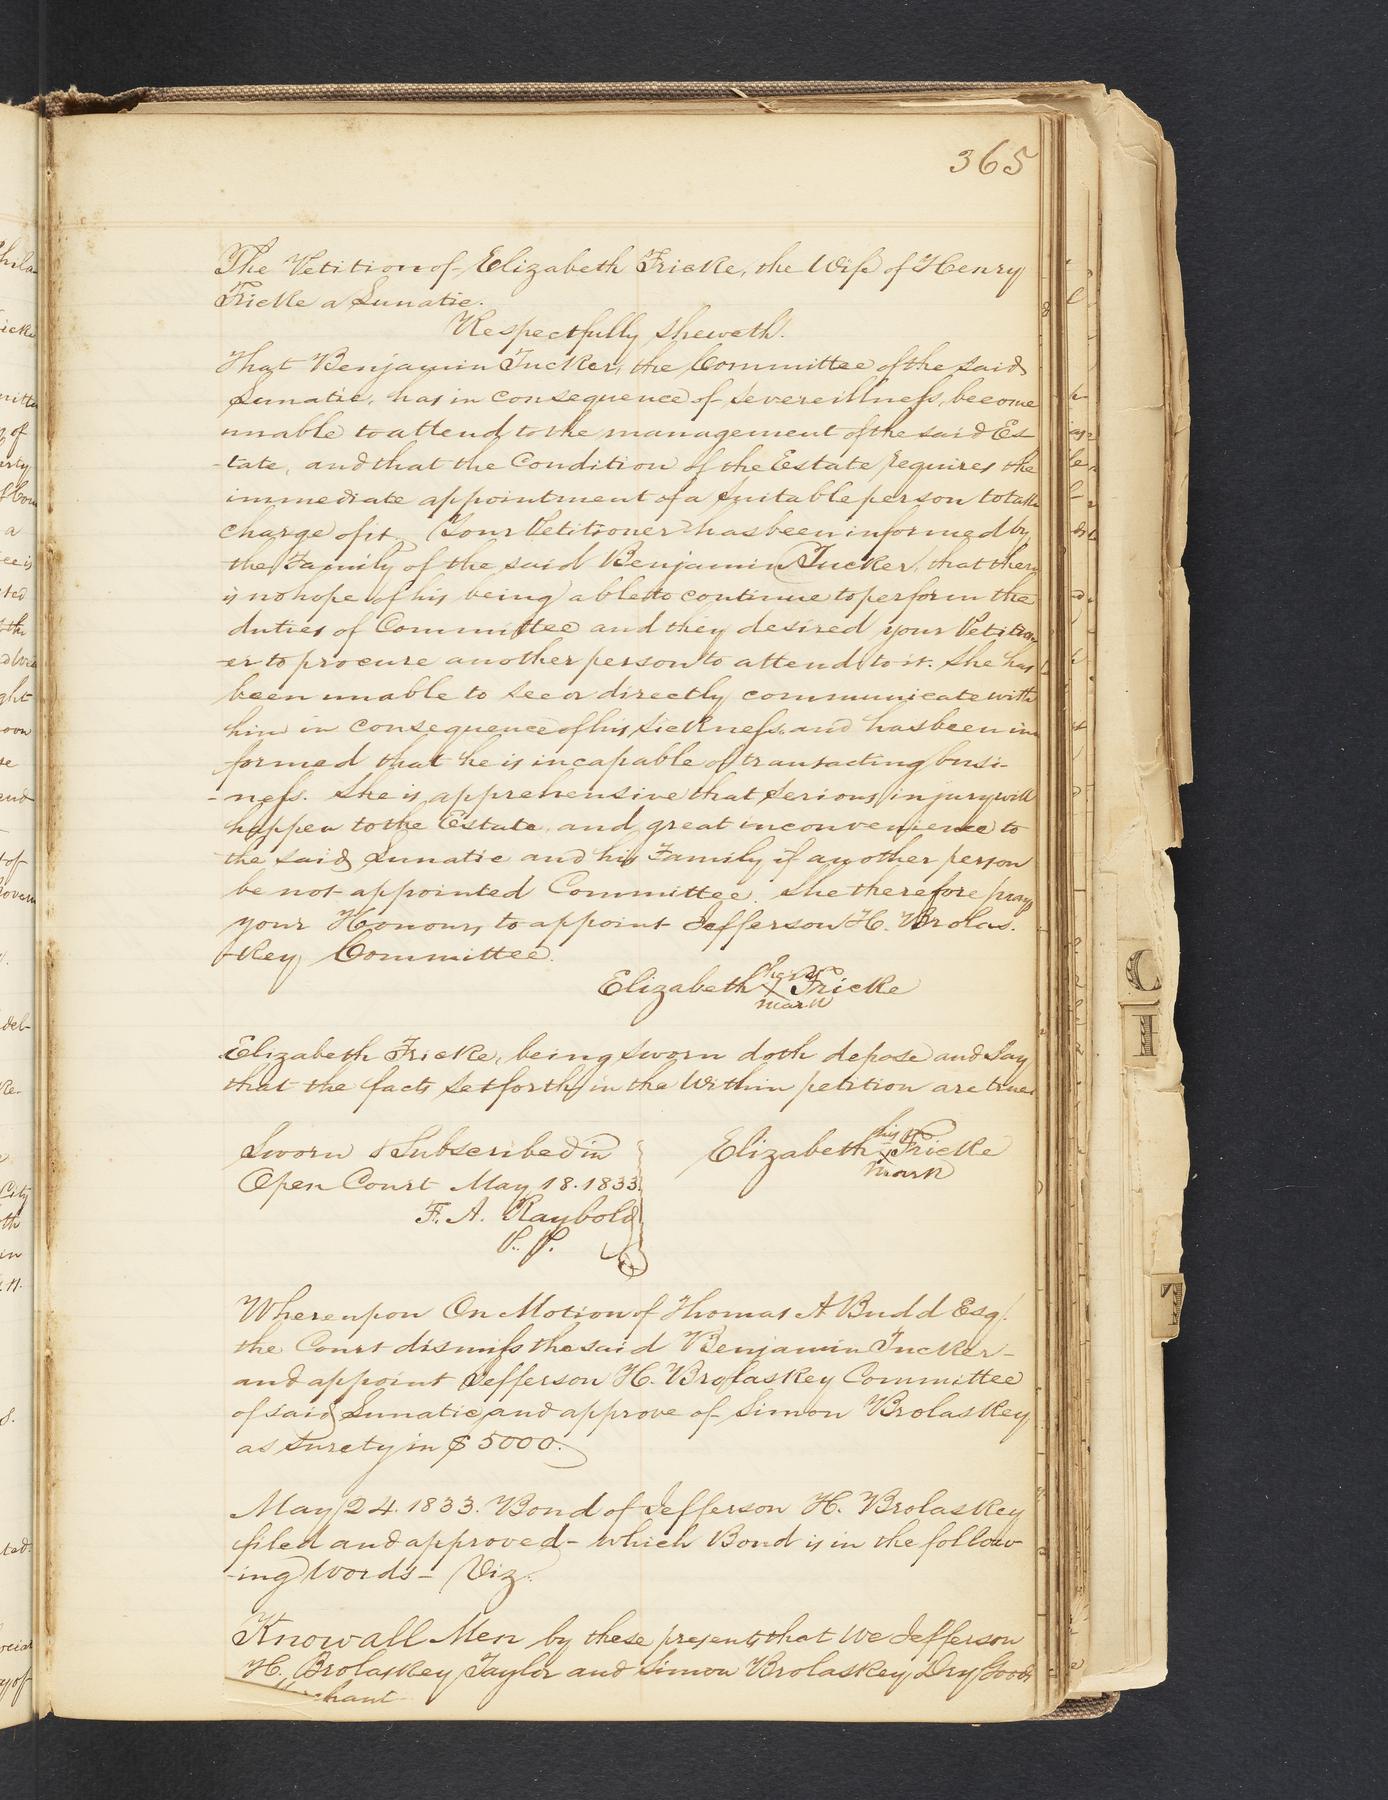 365
The Petition of Elizabeth Fricke, the Wife of Henry
Fricke a Lunatic.
Respectfully sheweth.
That Benjamin Tucker, the Committee of the said
Lunatic, has in consequence of severe illness, become
unable to attend to the management of the said Es-
-tate, and that the Condition of the Estate requires the
immediate appointment of a suitable person to take
charge of it. Your Petitioner has been informed by
the Family of the said Benjamin Tucker, that there
is no hope of his being able to continue to perform the
duties of Committee and they desired your Petition
-er to procure another person to attend to it. She has
been unable to see or directly communicate with
him in consequence of his sickness, and has been in
formed that he is incapable of transacting busi-
-ness. She is apprehensive that serious injury will
happen to the Estate, and great inconvenience to
the said Lunatic and his Family if another person
be not appointed Committee. She therefore prays
your Honours, to appoint Jefferson H. Brolas.
-key Committee.
her
Elizabeth X Fricke
mark
Elizabeth Fricke, being sworn doth depose and say
that the facts set forth in the Within petition are true.
Sworn & Subscribed in
Open Court May 18. 1833.
F. A. Raybold
P. P.
his
Elizabeth X Fricke
mark
Whereupon On Motion of Thomas A Budd Esq.
the Court dismiss the said Benjamin Tucker-
and appoint Jefferson H. Brolaskey Committee
of said Lunatic, and approve of Simon Brolaskey
as surety in $5000.
May 24. 1833. Bond of Jefferson H. Brolaskey
filed and approved- which Bond is in the follow-
-ing Words- Viz.
Know all Men by these presents, that We Jefferson
H. Brolaskey Taylor and Simon Brolaskey Dry Goods
C
I
T